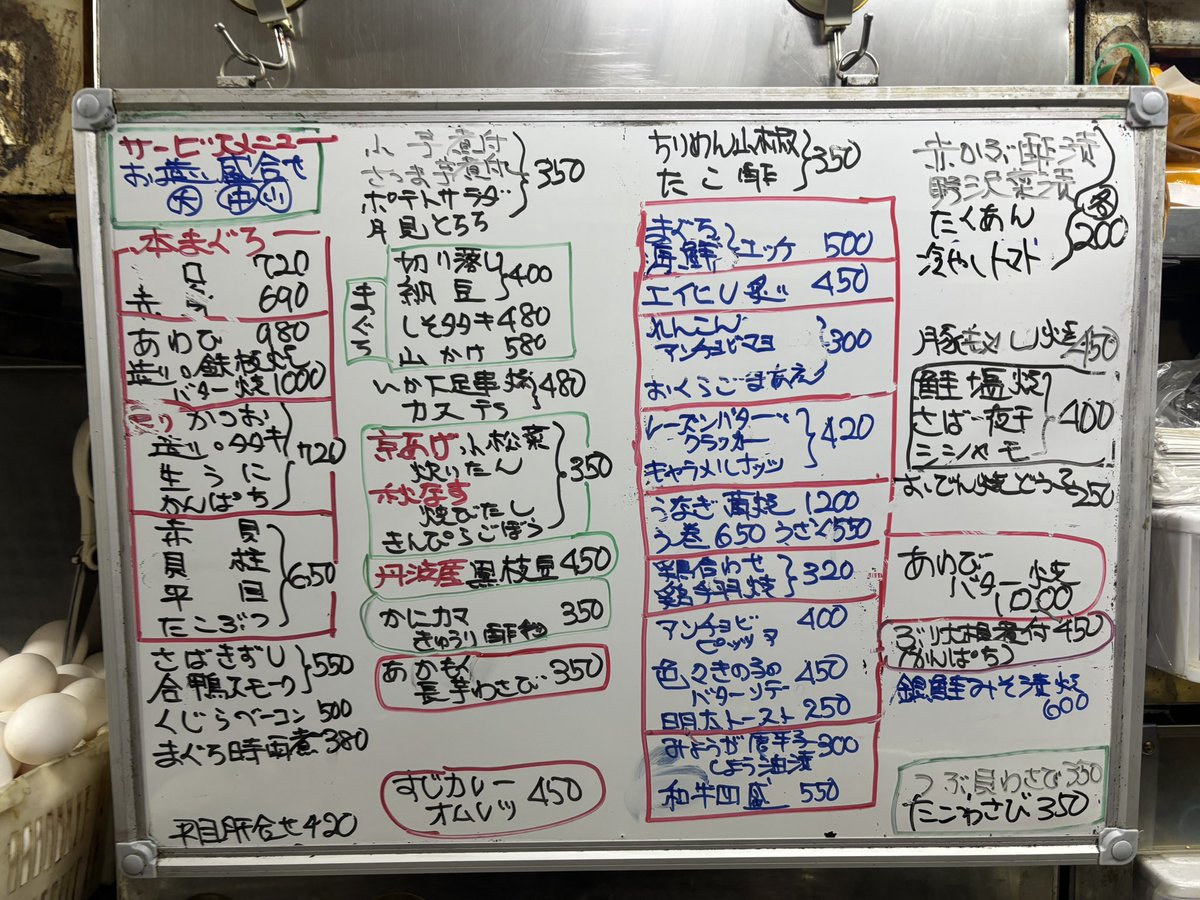 サービスメニュー
お造り盛合せ
大 中 小
本まぐろ
トロ 720
赤身 690
あわび 980
造り。鉄板焼
バター焼 1000
かつお
造り。タタキ
生うに
かんぱち
720
赤貝
貝柱
平目
たこぶつ
650
さばきずし
合鴨スモーク
550
くじらベーコン 500
まぐろ時雨煮 380
平目肝合せ 420
小芋煮付
さつま芋煮付
ポテトサラダ
月見とろろ
350
まぐろ
切り落し
納豆
400
しそタタキ 480
山かけ 580
いか下足串焼
カステラ
480
京あげ小松菜
炊いたん
秋なす
焼びたし
きんぴらごぼう
350
丹波産 黒枝豆 450
かにカマ
きゅうり酢物
350
あかもく
長芋わさび
350
すじカレー
オムレツ
450
ちりめん山椒
たこ酢
350
まぐろ
海鮮
ユッケ 500
エイヒレ炙り 450
れんこん
アンチョビマヨ
おくらごまあえ
300
レーズンバター
クラッカー
キャラメルナッツ
420
うなぎ蒲焼 1200
う巻 650 うざく 550
鶏合わせ
鶏手羽焼
320
アンチョビ
ピッツァ
400
色々きのこの
バターソテー
450
明太トースト 250
みょうが唐辛子
しょう油漬
300
和牛 550
赤かぶ酢漬
野沢菜漬
たくあん
冷やしトマト
各
200
豚キムし焼 450
鮭塩焼
さば一夜干
シシャモ
400
おでん焼どうふ 250
あわび
バター焼
1000
ぶり大根煮付 450
(かんぱち)
銀鮭みそ漬焼
600
つぶ貝わさび 350
たこわさび 350